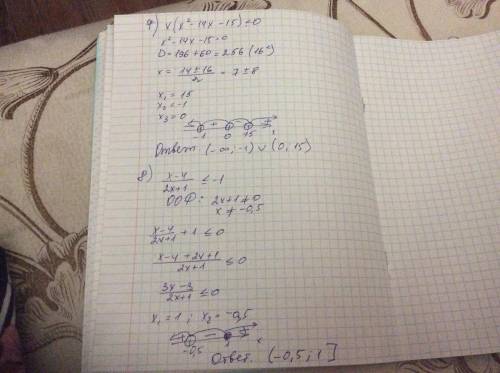 7) x(x²-14x-15)<0
x²-14x-15=0
D=196+60=256 (16²)
x = (14±16)/2 = 7±8
x₁ = 15
x₂ = -1
x₃ = 0
- + - +
-1 0 15 x
Ответ: (-∞; -1) ∪ (0, 15)
8) (x-4)/(2x+1) ≤ -1
ООФ: 2x+1≠0
x ≠ -0,5
(x-4)/(2x+1) + 1 ≤ 0
(x-4+2x+1)/(2x+1) ≤ 0
(3x-3)/(2x+1) ≤ 0
x₁ = 1 ; x₂ = -0,5
+ - +
-0,5 1 x
Ответ. (-0,5; 1]